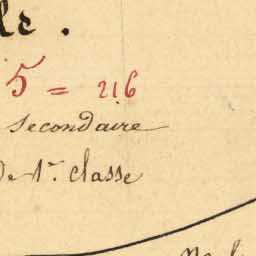 le.
5 = 216
secondaire
de 1re classe